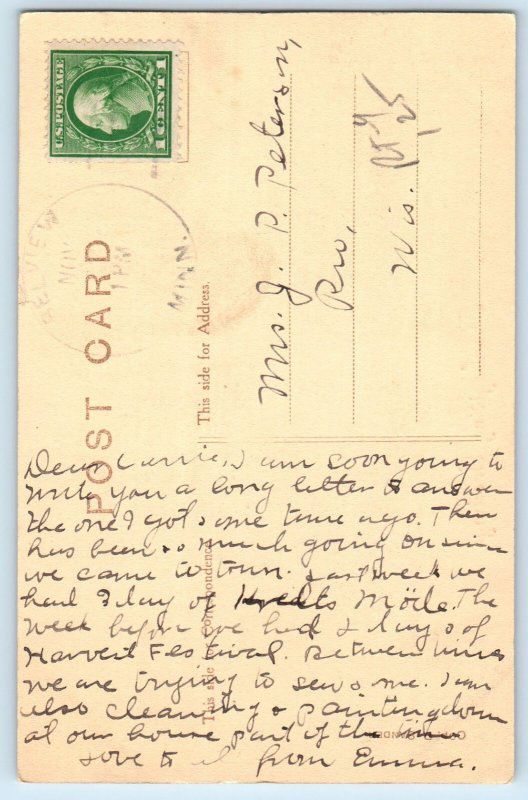 U.S. POSTAGE
1 CENT 1
BELVIEW
NOV
1 PM
MINN.
POST CARD
This side for Address.
Mrs. J. P. Peterson,
Rio,
Wis.
This side for Correspondence.
Dear Carrie, I am soon going to
write you a long letter & answer
the one I got some time ago. There
has been so much going on since
we came to town. Last week we
had 3 day of Kredts Möte. The
week before we had 2 days of
Harvest Festival. Between times
we are trying to sew some. I am
also cleaning & painting down
at our house part of the time
Love to all from Emma.